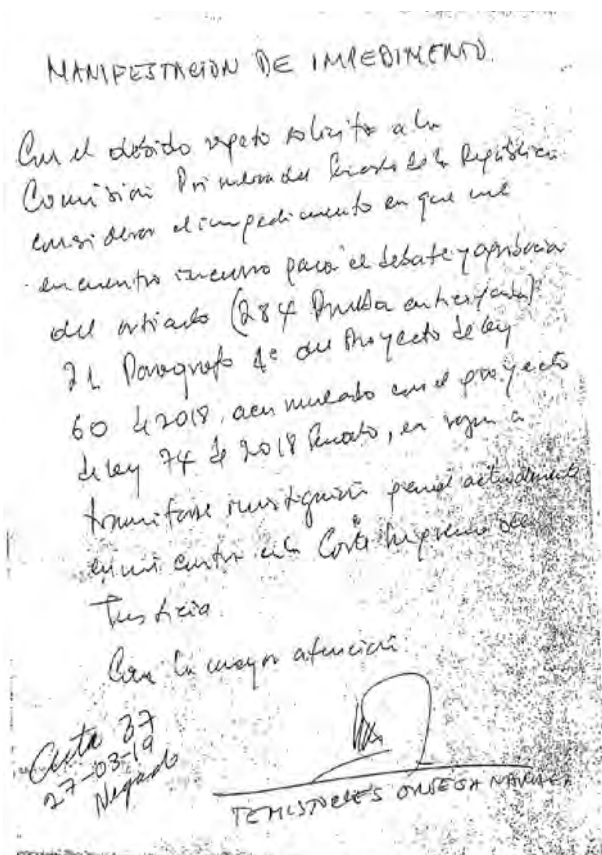 MANIFESTACION DE IMPEDIMENTO.
Con el debido respeto solicito a la
Comisión Primera del Senado de la República
considerar el impedimento en que me
encuentro incurso para el debate y aprobación
del articulo (284 Prueba anticipada)
21 Paragrafo 4º del Proyecto de ley
60 de 2018, acumulado con el proyecto
de ley 74 de 2018 Senado, en razon a
tramitarse investigación penal actualmente
en mi contra en la Corte Suprema de
Justicia.
Con la mayor atención.
Acta 37
27-03-19
Negado
TEMISTOCLES ORTEGA NARVAEZ